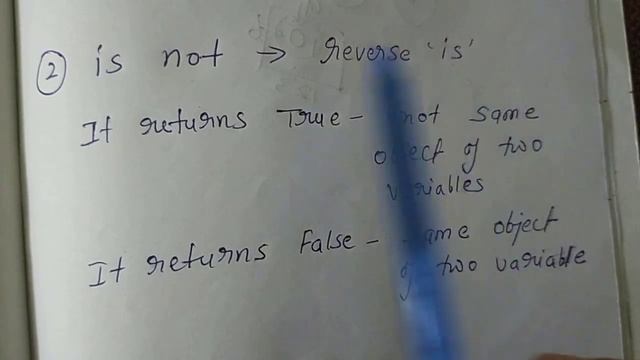 ② is not → reverse 'is'
It returns True - not same
object of two
variables
It returns False - same object
of two variable